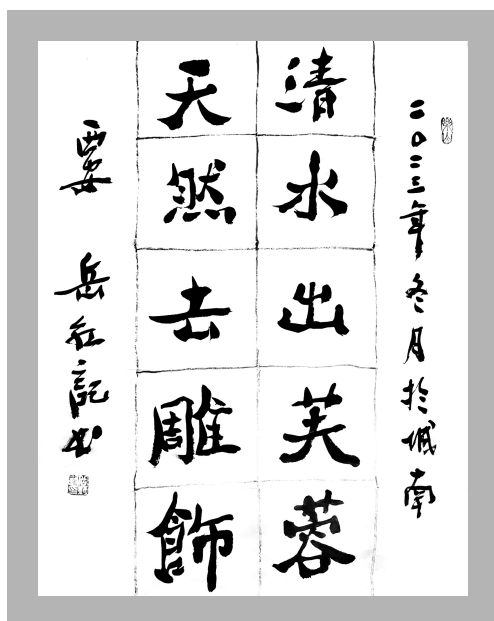 二〇二三年冬月於城南
清水出芙蓉
天然去雕飾
岳红記书